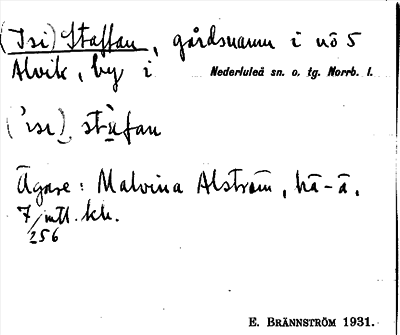 (Isi) Staffan, gårdsnamn i nö 5
Alvik, by i Nederluleå sn. o. tg. Norrb. l.
Ägare: Malvina Alström, hä-ä.
7/256 mtl. kh.
E. BRÄNNSTRÖM 1931.